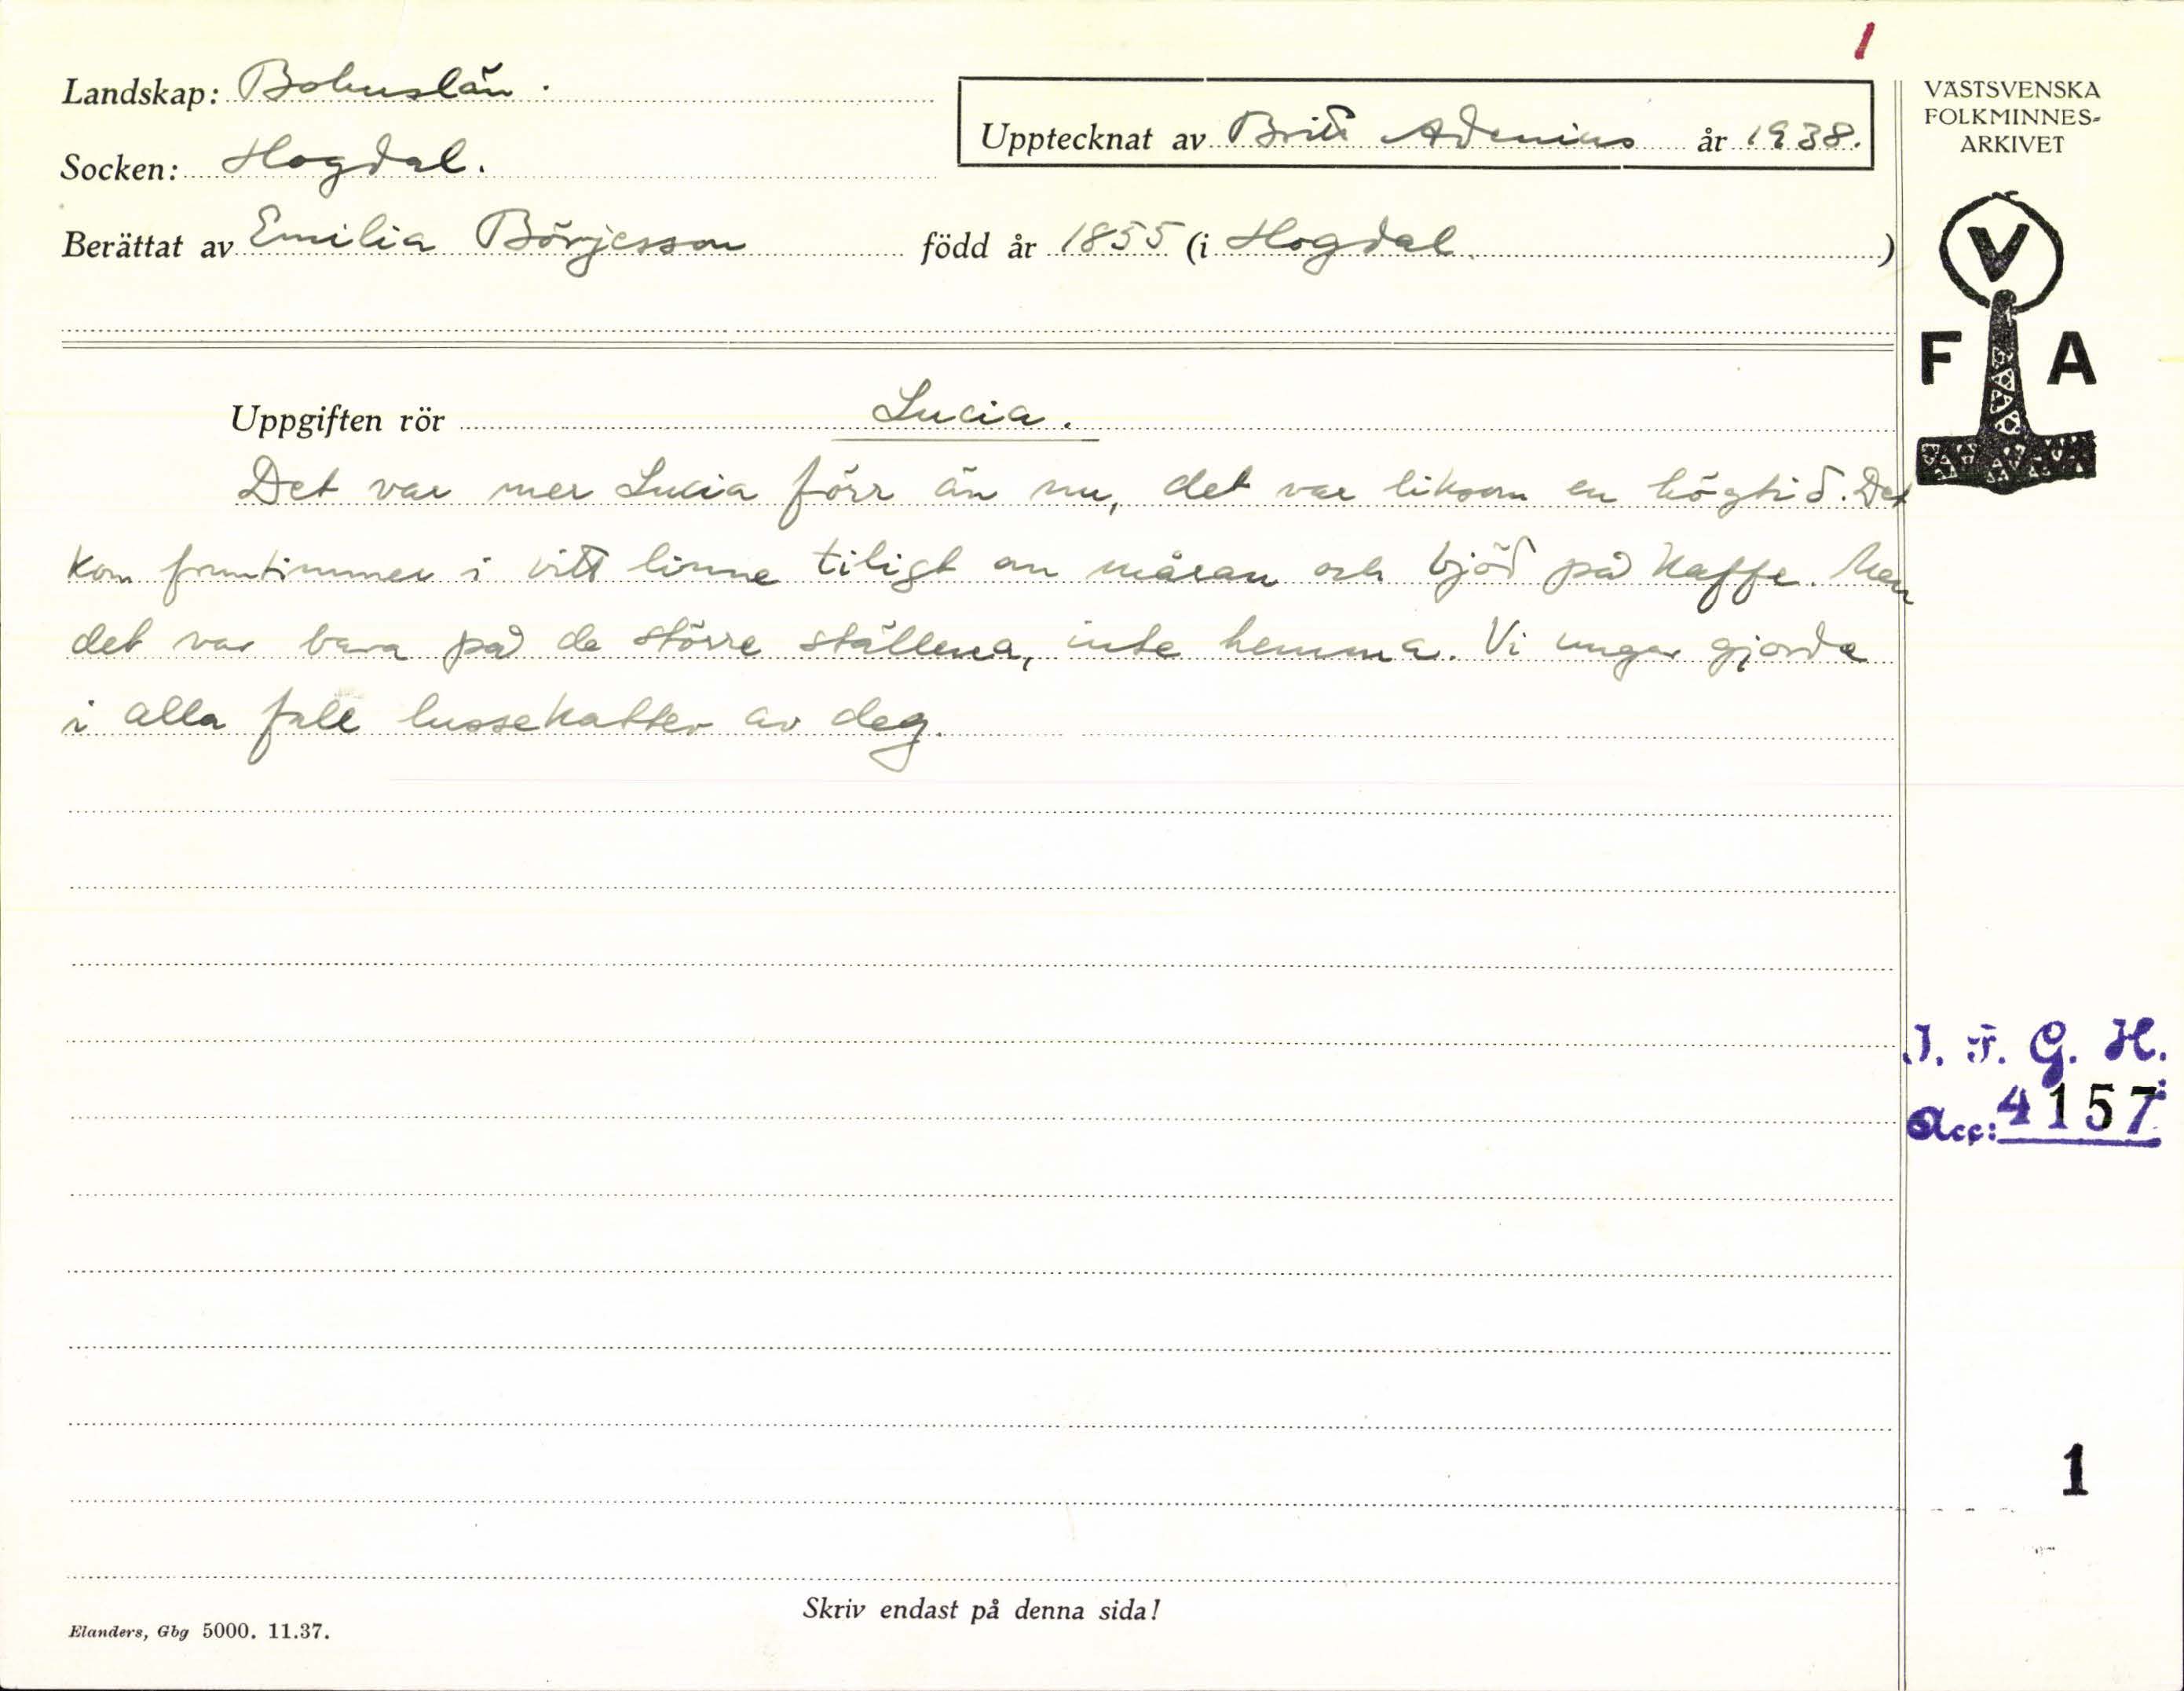 1
Landskap: Bohuslän.
Upptecknat av Britt Adenius år 1938.
Socken: Hogdal.
Berättat av Emilia Börjesson född år 1855 (i Hogdal.)
VÄSTSVENSKA
FOLKMINNES-
ARKIVET
V
F A
Uppgiften rör Lucia.
Det var mer Lucia förr än nu, det var liksom en högtid. Det
kom fruntimmer i vitt linne tiligt om måran och bjöd på kaffe. Men
det var bara på de större ställena, inte hemma. Vi ungar gjorde
i alla fall lussekatter av deg.
I. F. G. H.
Acc: 4157
1
Skriv endast på denna sida!
Elanders, Gbg 5000. 11.37.